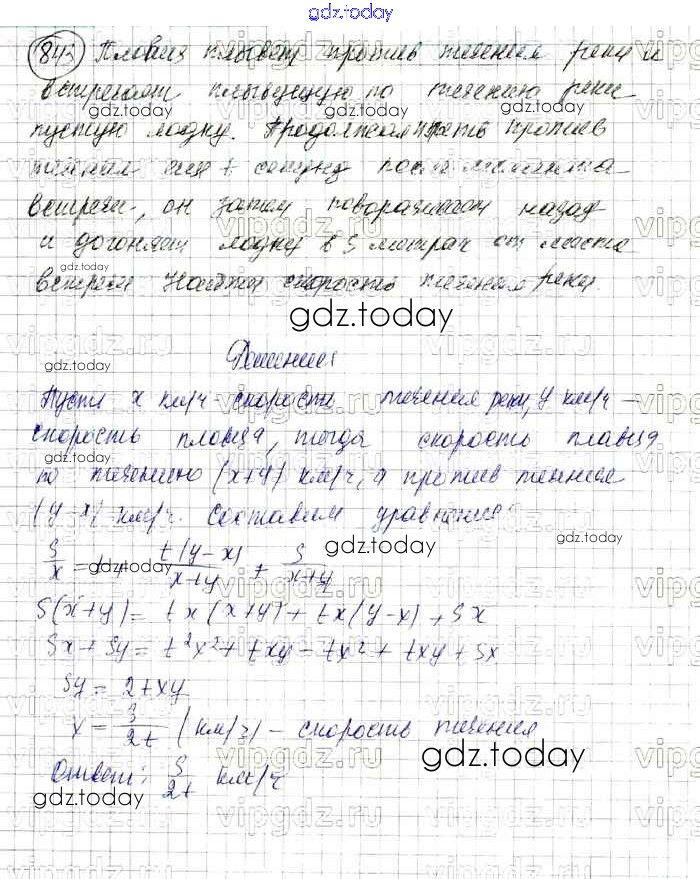 gdz.today
843 Пловец плывет против течения реки и
встречает плывущую по течению реки
пустую лодку. Продолжая плыть против
течения еще t секунд после момента
встречи, он затем поворачивает назад
и догоняет лодку в S метрах от места
встречи Найти скорость течения реки
gdz.today
Решение
Пусть x км/ч скорость течения реки, y км/ч –
скорость пловца, тогда скорость пловца
по течению (x+y) км/ч, а против течения
(y-x) км/ч. Составим уравнение
S/x = t + t(y-x)/x+y + S/x+y
S(x+y) = tx(x+y) + tx(y-x) + Sx
Sx + Sy = t²x² + txy - tx² + txy + Sx
Sy = 2txy
x = S/2t (км/ч) – скорость течения
gdz.today
Ответ: S/2t км/ч
gdz.today